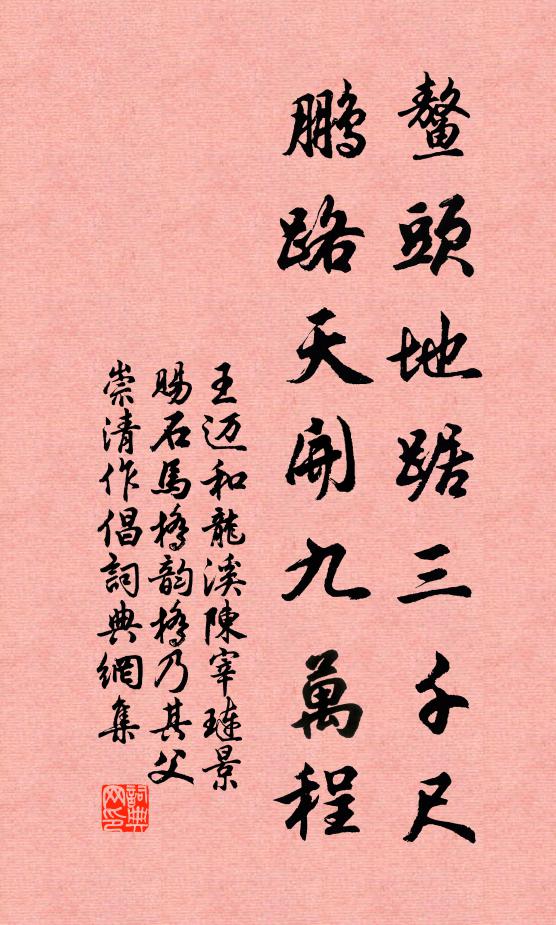 鰲頭地踞三千尺
鵬路天開九萬程
王迈和龍溪陳宰璉景
賜石馬橋韵橋乃其父
崇清作倡詞典網集
詞典网印